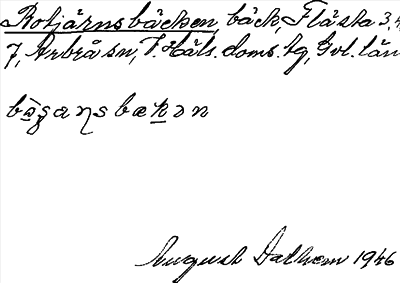 Rotjärnsbäcken, bäck, Fläska 3, 4
7, Arbrå sn, V. Häls. doms. hg, Gvl. län
August Dalhem 1946